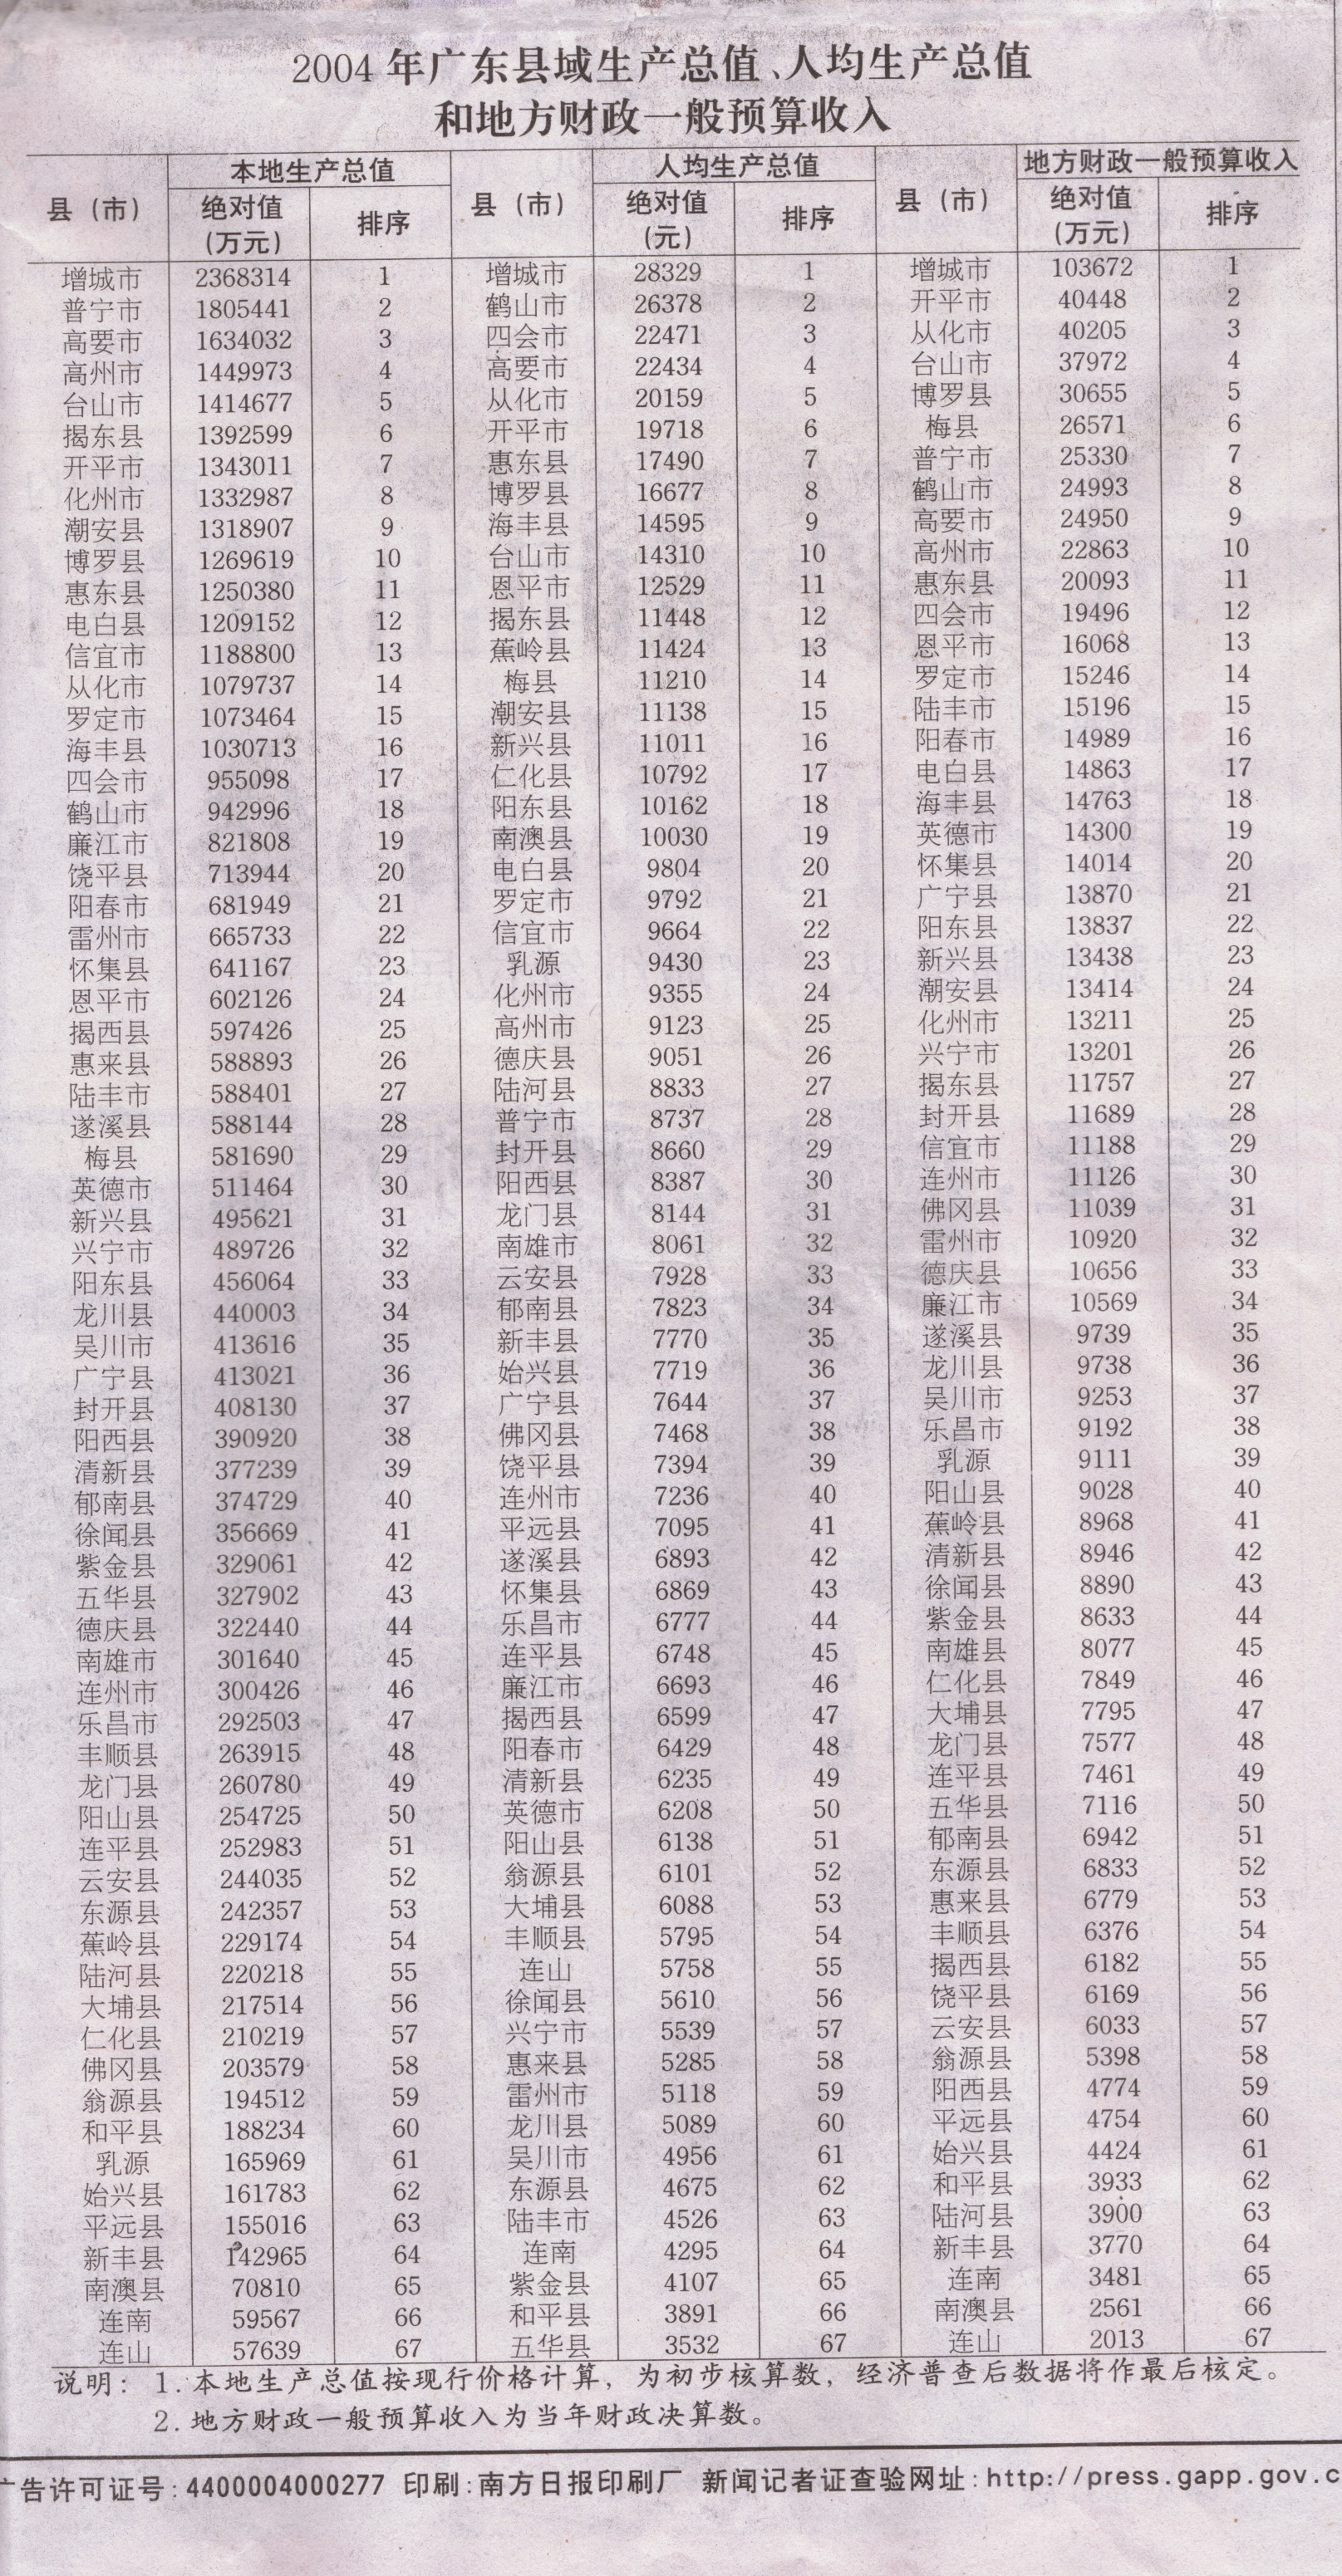 2004年广东县域生产总值、人均生产总值
和地方财政一般预算收入
县（市） 本地生产总值 县（市） 人均生产总值 县（市） 地方财政一般预算收入
绝对值 排序 绝对值 排序 绝对值 排序
(万元) (元) (万元)
增城市 2368314 1 增城市 28329 1 增城市 103672 1
普宁市 1805441 2 鹤山市 26378 2 开平市 40448 2
高要市 1634032 3 四会市 22471 3 从化市 40205 3
高州市 1449973 4 高要市 22434 4 台山市 37972 4
台山市 1414677 5 从化市 20159 5 博罗县 30655 5
揭东县 1392599 6 开平市 19718 6 梅县 26571 6
开平市 1343011 7 惠东县 17490 7 普宁市 25330 7
化州市 1332987 8 博罗县 16677 8 鹤山市 24993 8
潮安县 1318907 9 海丰县 14595 9 高要市 24950 9
博罗县 1269619 10 台山市 14310 10 高州市 22863 10
惠东县 1250380 11 恩平市 12529 11 惠东县 20093 11
电白县 1209152 12 揭东县 11448 12 四会市 19496 12
信宜市 1188800 13 蕉岭县 11424 13 恩平市 16068 13
从化市 1079737 14 梅县 11210 14 罗定市 15246 14
罗定市 1073464 15 潮安县 11138 15 陆丰市 15196 15
海丰县 1030713 16 新兴县 11011 16 阳春市 14989 16
四会市 955098 17 仁化县 10792 17 电白县 14863 17
鹤山市 942996 18 阳东县 10162 18 海丰县 14763 18
廉江市 821808 19 南澳县 10030 19 英德市 14300 19
饶平县 713944 20 电白县 9804 20 怀集县 14014 20
阳春市 681949 21 罗定市 9792 21 广宁县 13870 21
雷州市 665733 22 信宜市 9664 22 阳东县 13837 22
怀集县 641167 23 乳源 9430 23 新兴县 13438 23
恩平市 602126 24 化州市 9355 24 潮安县 13414 24
揭西县 597426 25 高州市 9123 25 化州市 13211 25
惠来县 588893 26 德庆县 9051 26 兴宁市 13201 26
陆丰市 588401 27 陆河县 8833 27 揭东县 11757 27
遂溪县 588144 28 普宁市 8737 28 封开县 11689 28
梅县 581690 29 封开县 8660 29 信宜市 11188 29
英德市 511464 30 阳西县 8387 30 连州市 11126 30
新兴县 495621 31 龙门县 8144 31 佛冈县 11039 31
兴宁市 489726 32 南雄市 8061 32 雷州市 10920 32
阳东县 456064 33 云安县 7928 33 德庆县 10656 33
龙川县 440003 34 郁南县 7823 34 廉江市 10569 34
吴川市 413616 35 新丰县 7770 35 遂溪县 9739 35
广宁县 413021 36 始兴县 7719 36 龙川县 9738 36
封开县 408130 37 广宁县 7644 37 吴川市 9253 37
阳西县 390920 38 佛冈县 7468 38 乐昌市 9192 38
清新县 377239 39 饶平县 7394 39 乳源 9111 39
郁南县 374729 40 连州市 7236 40 阳山县 9028 40
徐闻县 356669 41 平远县 7095 41 蕉岭县 8968 41
紫金县 329061 42 遂溪县 6893 42 清新县 8946 42
五华县 327902 43 怀集县 6869 43 徐闻县 8890 43
德庆县 322440 44 乐昌市 6777 44 紫金县 8633 44
南雄市 301640 45 连平县 6748 45 南雄县 8077 45
连州市 300426 46 廉江市 6693 46 仁化县 7849 46
乐昌市 292503 47 揭西县 6599 47 大埔县 7795 47
丰顺县 263915 48 阳春市 6429 48 龙门县 7577 48
龙门县 260780 49 清新县 6235 49 连平县 7461 49
阳山县 254725 50 英德市 6208 50 五华县 7116 50
连平县 252983 51 阳山县 6138 51 郁南县 6942 51
云安县 244035 52 翁源县 6101 52 东源县 6833 52
东源县 242357 53 大埔县 6088 53 惠来县 6779 53
蕉岭县 229174 54 丰顺县 5795 54 丰顺县 6376 54
陆河县 220218 55 连山 5758 55 揭西县 6182 55
大埔县 217514 56 徐闻县 5610 56 饶平县 6169 56
仁化县 210219 57 兴宁市 5539 57 云安县 6033 57
佛冈县 203579 58 惠来县 5285 58 翁源县 5398 58
翁源县 194512 59 雷州市 5118 59 阳西县 4774 59
和平县 188234 60 龙川县 5089 60 平远县 4754 60
乳源 165969 61 吴川市 4956 61 始兴县 4424 61
始兴县 161783 62 东源县 4675 62 和平县 3933 62
平远县 155016 63 陆丰市 4526 63 陆河县 3900 63
新丰县 142965 64 连南 4295 64 新丰县 3770 64
南澳县 70810 65 紫金县 4107 65 连南 3481 65
连南 59567 66 和平县 3891 66 南澳县 2561 66
连山 57639 67 五华县 3532 67 连山 2013 67
说明：1.本地生产总值按现行价格计算，为初步核算数，经济普查后数据将作最后核定。
2.地方财政一般预算收入为当年财政决算数。
广告许可证号:4400004000277 印刷:南方日报印刷厂 新闻记者证查验网址:http://press.gapp.gov.c